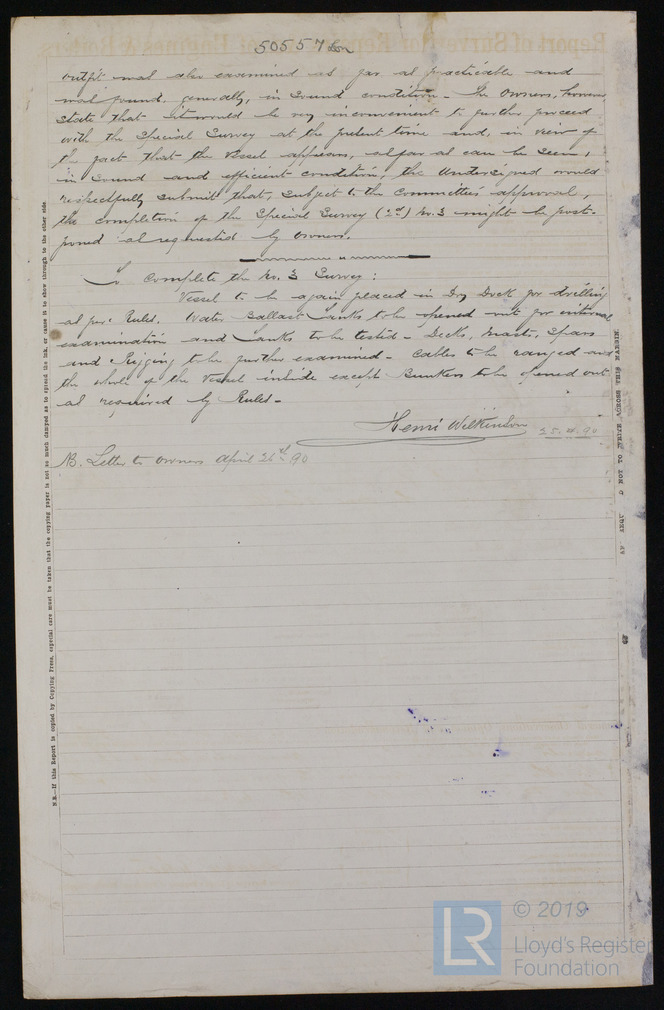 50557 Lon
outfit was also examined as far as practicable and
was found, generally, in sound condition - The Owners, however
state that it would be very inconvenient to further proceed
with the Special Survey at the present time and, in view of
the fact that the Vessel appears, as far as can be seen,
in sound and efficient condition, the Undersigned would
respectfully submit that, subject to the Committee's approval,
the completion of the Special Survey (2nd) No. 3 might be post-
poned as requested by Owners.
To complete the No. 3 Survey:
Vessel to be again placed in Dry Dock for drilling
as per Rules. Water Ballast Tanks to be opened out for internal
examination and Tanks to be tested - Decks, Masts, Spars
and Rigging to be further examined - Cables to be ranged and
the whole of the Vessel inside except Bunkers to be opened out
as required by Rules -
Henri Wilkinson 25.4.90
NB. Letter to owners April 26th 90
N.B.—If this Report is copied by Copying Press, especial care must be taken that the copying paper is not so much damped as to spread the ink, or cause it to show through to the other side.
NOT TO WRITE ACROSS THIS MARGIN.
LR
© 2019
Lloyd's Register
Foundation